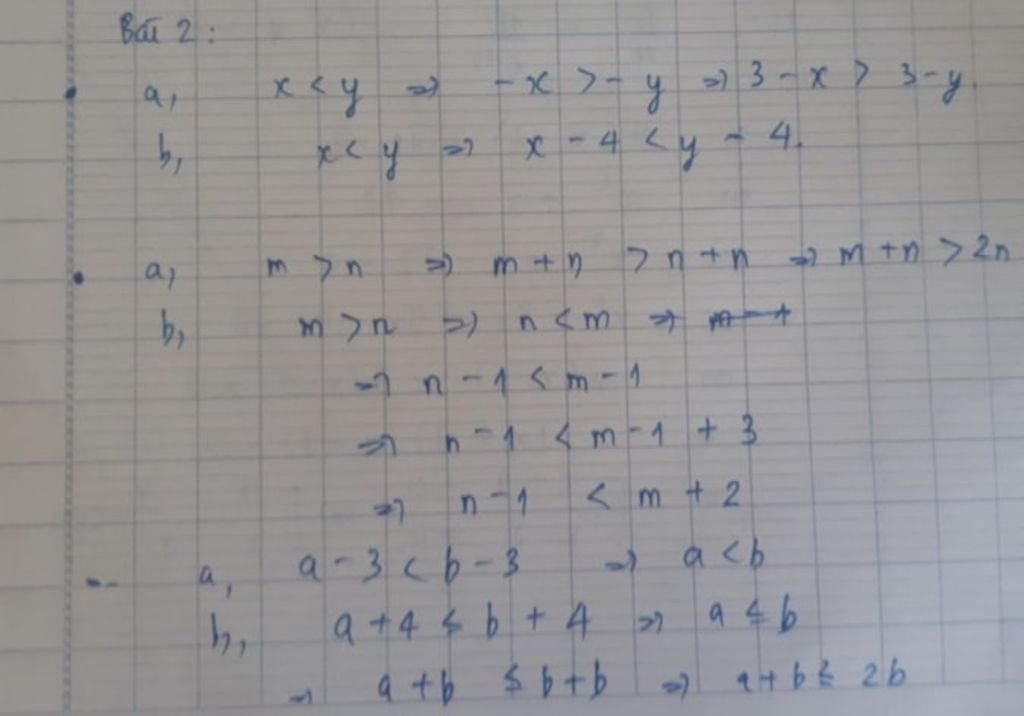 Bài 2:
• a, x < y => -x > -y => 3 - x > 3 - y.
b, x < y => x - 4 < y - 4.
• a, m > n => m + n > n + n => m + n > 2n
b, m > n => n < m =>
=> n - 1 < m - 1
=> n - 1 < m - 1 + 3
=> n - 1 < m + 2
a, a - 3 < b - 3 => a < b
b, a + 4 ≤ b + 4 => a ≤ b
=> a + b ≤ b + b => a + b ≤ 2b